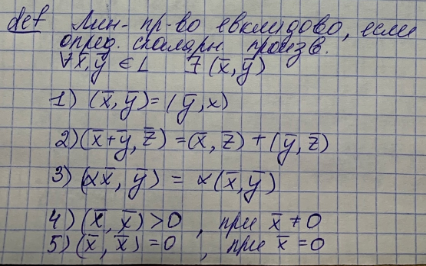 def Лин- пр-во евклидово, если
опред. скалярн. произв.
∀x̄, ȳ ∈ L ∃ (x̄, ȳ)
1) (x̄, ȳ) = (ȳ, x)
2) (x̄+ȳ, z̄) = (x̄, z) + (ȳ, z)
3) (αx̄, ȳ) = α(x̄, ȳ)
4) (x̄, x̄) > 0 , при x̄ ≠ 0
5) (x̄, x̄) = 0 , при x̄ = 0